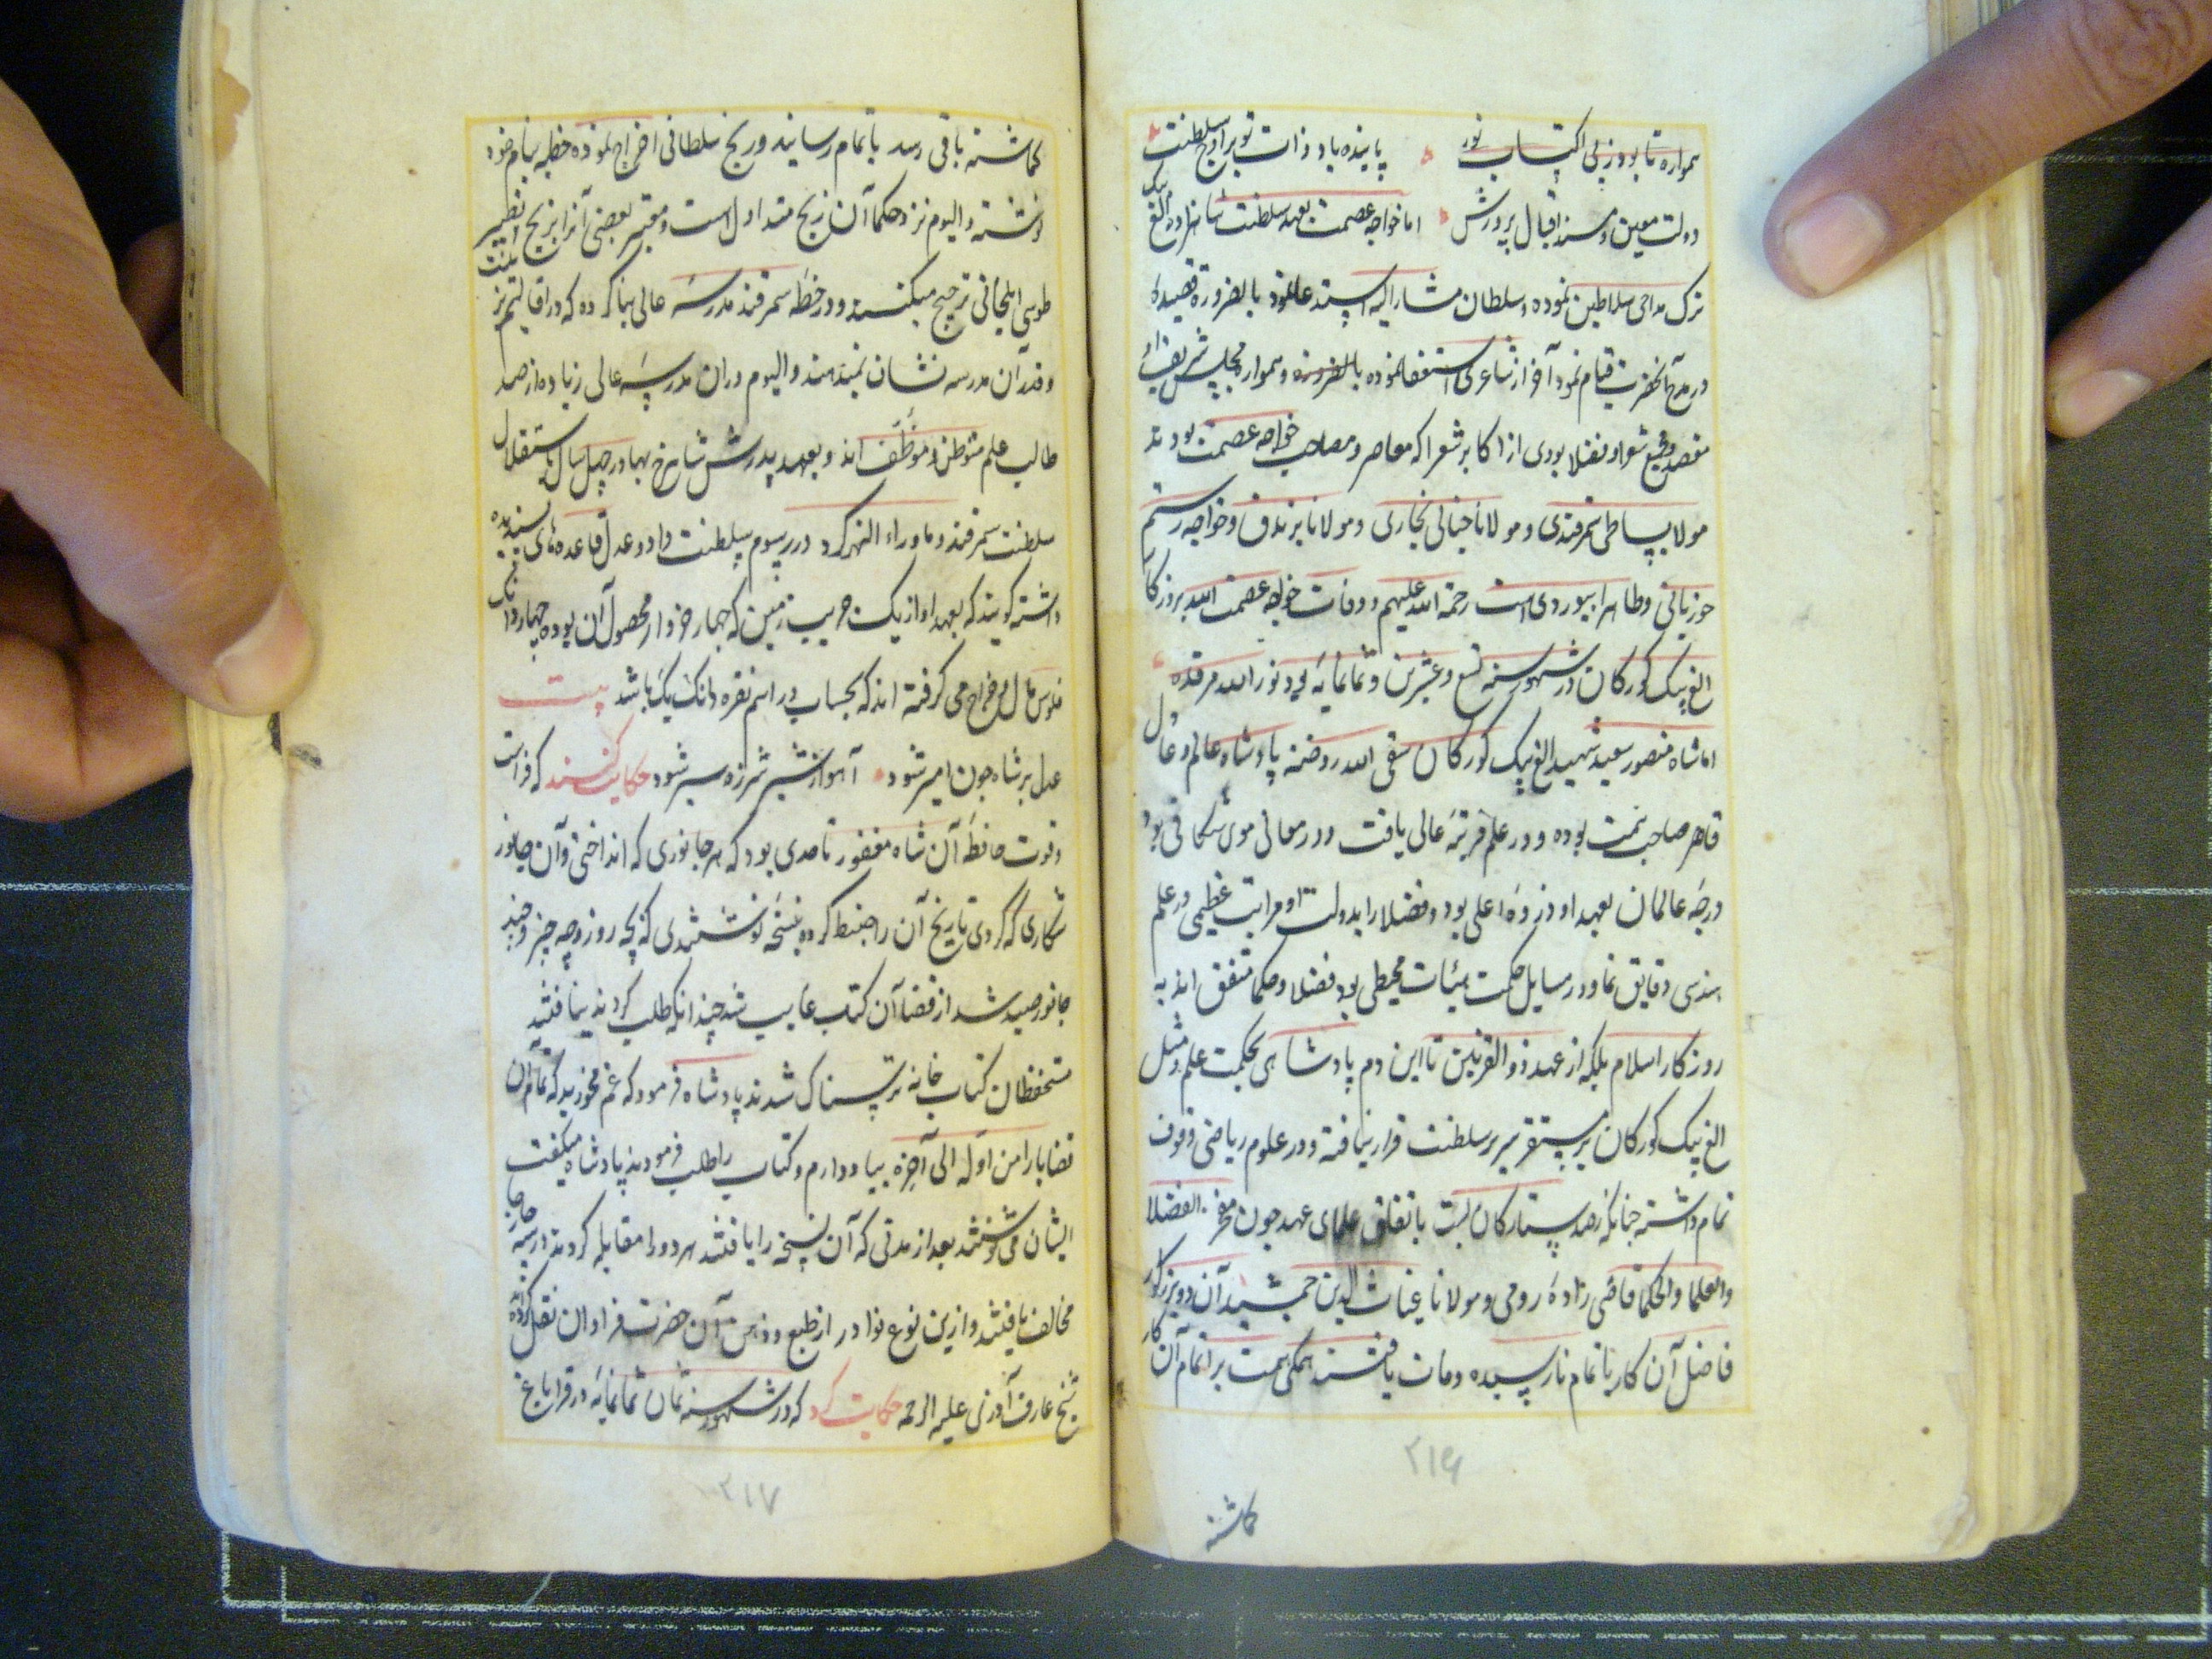 همواره تا بود ز پی اکتساب نور پاینده باد ذات تو بر اوج سلطنت
دولت معین و مسند اقبال پرورش اما خواجه عصمت بعهد سلطنت شاهزاده الغ بیک
ترک مداحی سلاطین نموده و سلطان مشار الیه استدعا نمود بالضروره قصیدها
در مدح آنحضرت قیام نمود آخر از شاعری استعفا نموده بالضروره و همواره مجلس شریف او
مقصد و مجمع شعرا و فضلا بودی از اکابر شعرا که معاصر و مصاحب خواجه عصمت بودند
مولا بساطی سمرقندی و مولانا خیالی بخاری و مولانا برندق و خواجه رستم
خوریانی و طاهر ابیوردی است رحمة الله علیهم و وفات خواجه عصمت الله بروزکار
الغ بیک کورکان در شهور سنه تسع و عشرین و ثمانمایه بود نور الله مرقده
اما شاه منصور سعید شهید الغ بیک کورکان سقی الله روضته پادشاه عالم و عادل
قاهر صاحب همت بوده و در علم مرتبه عالی یافت و در معانی موی شکافی بود
درجه عالمان بعهد او ذروه اعلی بود و فضلا را بدولت او مراتب عظیمی در علم
هندسی دقایق نما و در مسایل حکمت هیئات مجیطی بود فضلا و حکما متفق اند به
روزکار اسلام بلکه از عهد ذوالقرنین تا این دم پادشاهی بحکمت علم و مثل
الغ بیک کورکان بر مستقر سریر سلطنت قرار نیافته و در علوم ریاضی وقوف
تمام داشته چنانکه رصد ستارکان بست باتفاق علمای عهد چون مفخر الفضلا
والعلما والحکما قاضی زاده رومی و مولانا غیاث الدین جمشید آن دو بزرکوار
فاضل آن کار باتمام نارسیده وفات یافتند همکی همت بر اتمام آن کار
۲۱۶
کماشته
کماشته باقی رصد باتمام رسانید و زیج سلطانی اخراج نموده خطبه بنام خود
نوشته و الیوم نزد حکما آن زیج متداول است و معتبر بعضی آنرا بزیج نصیر
طوسی ایلخانی ترجیح میکنند و در خطه سمرقند مدرسه عالی بنا کرده که در اقالیم بزینت
و قدر آن مدرسه نشان نمیدهند و الیوم در ان مدرسه عالی زیاده از صد
طالب علم متوطن و موظف اند و بعهد پدرش شاهرخ بهادر چهل سال باستقلال
سلطنت سمرقند و ماوراء النهر کرد در رسوم سلطنت و داد و عدل قاعدهای پسندیده
داشته کویند که بعهد او از یک جریب زمین که چهار خروار محصول آن بوده چهار دانک
فلوس مال و خراج می کرفته اند که بحساب دراهم نقره دانک یک باشد بیت
عدل بر شاه چون امیر شود آهو از شیر شرزه سیر شود حکایت کنند که فراست
و قوت حافظه آن شاه مغفور تا حدی بود که هر جانوری که انداختی و آن جانور
شکاری که کردی تاریخ آن را ضبط کرده نسخه نوشتندی که بچه روز و چه چیز و چند
جانور صید شد از قضا آن کتاب غایب شد چندانکه طلب کردند نیافتند
مستحفظان کتاب خانه ترسناک شدند پادشاه فرمود که غم مخورید که تمام آن
قضایا را من اوله الی آخره بیاد دارم و کتاب را طلب فرمودند پادشاه میکفت
ایشان می نوشتند بعد از مدتی که آن نسخه را یافتند هر دو را مقابله کردند در سه چهار جا
مخالف یافتند و ازین نوع نوادر از طبع و ذهن آن حضرت فراوان نقل کرده اند
شیخ عارف آذری علیه الرحمه حکایت کرد که در شهور سنه ثمان ثمانمایه در قراباغ
۲۱۷